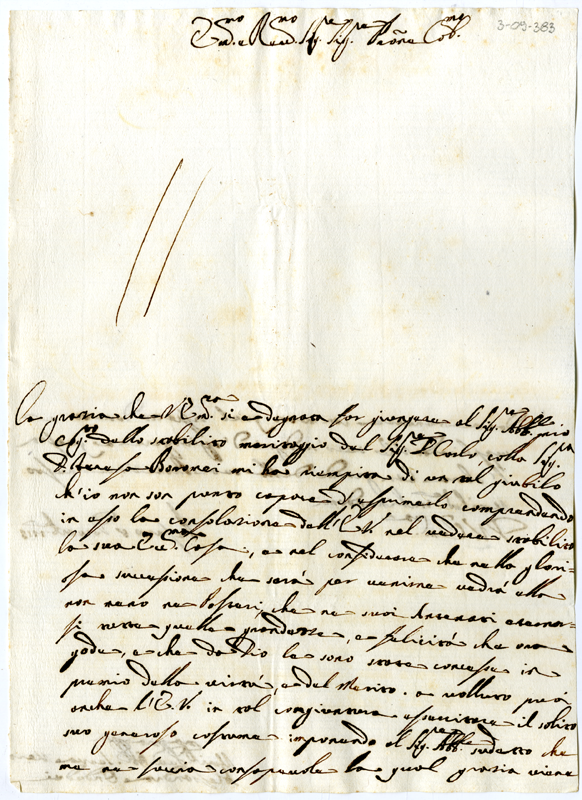 Em.mo e Rev.mo Sig.re Sig.re Padrone Col.mo
3-09-383
La grazia che V. Em.za si è degnata far giongere al Sig.r Abb.e mio
dello stabilito maritaggio del Sig.r D. Carlo colla Sig.ra
D. Teresa Boromei mi ha riempito di un tal giubilo
ch'io non son punto capace d'esprimerlo comprendendo
in esso la consolazione dell'E. V. nel vedere stabilito
la sua Ecc.ma Casa, e nel considerare che nella glori-
osa successione che sarà per venirne vedrà ella
non meno ne Posteri, che ne suoi Antenati eternar-
si tutta quella grandezza, e felicità che ora
gode, e che da Dio le sono state concesse in
premio della virtù, e del merito. e voluto può
anche l'E. V. in tal congiuntura esercitare il solito
suo generoso costume imponendo al Sig.r Abb.e sudetto che
me ne faccia consapevole la qual grazia viene